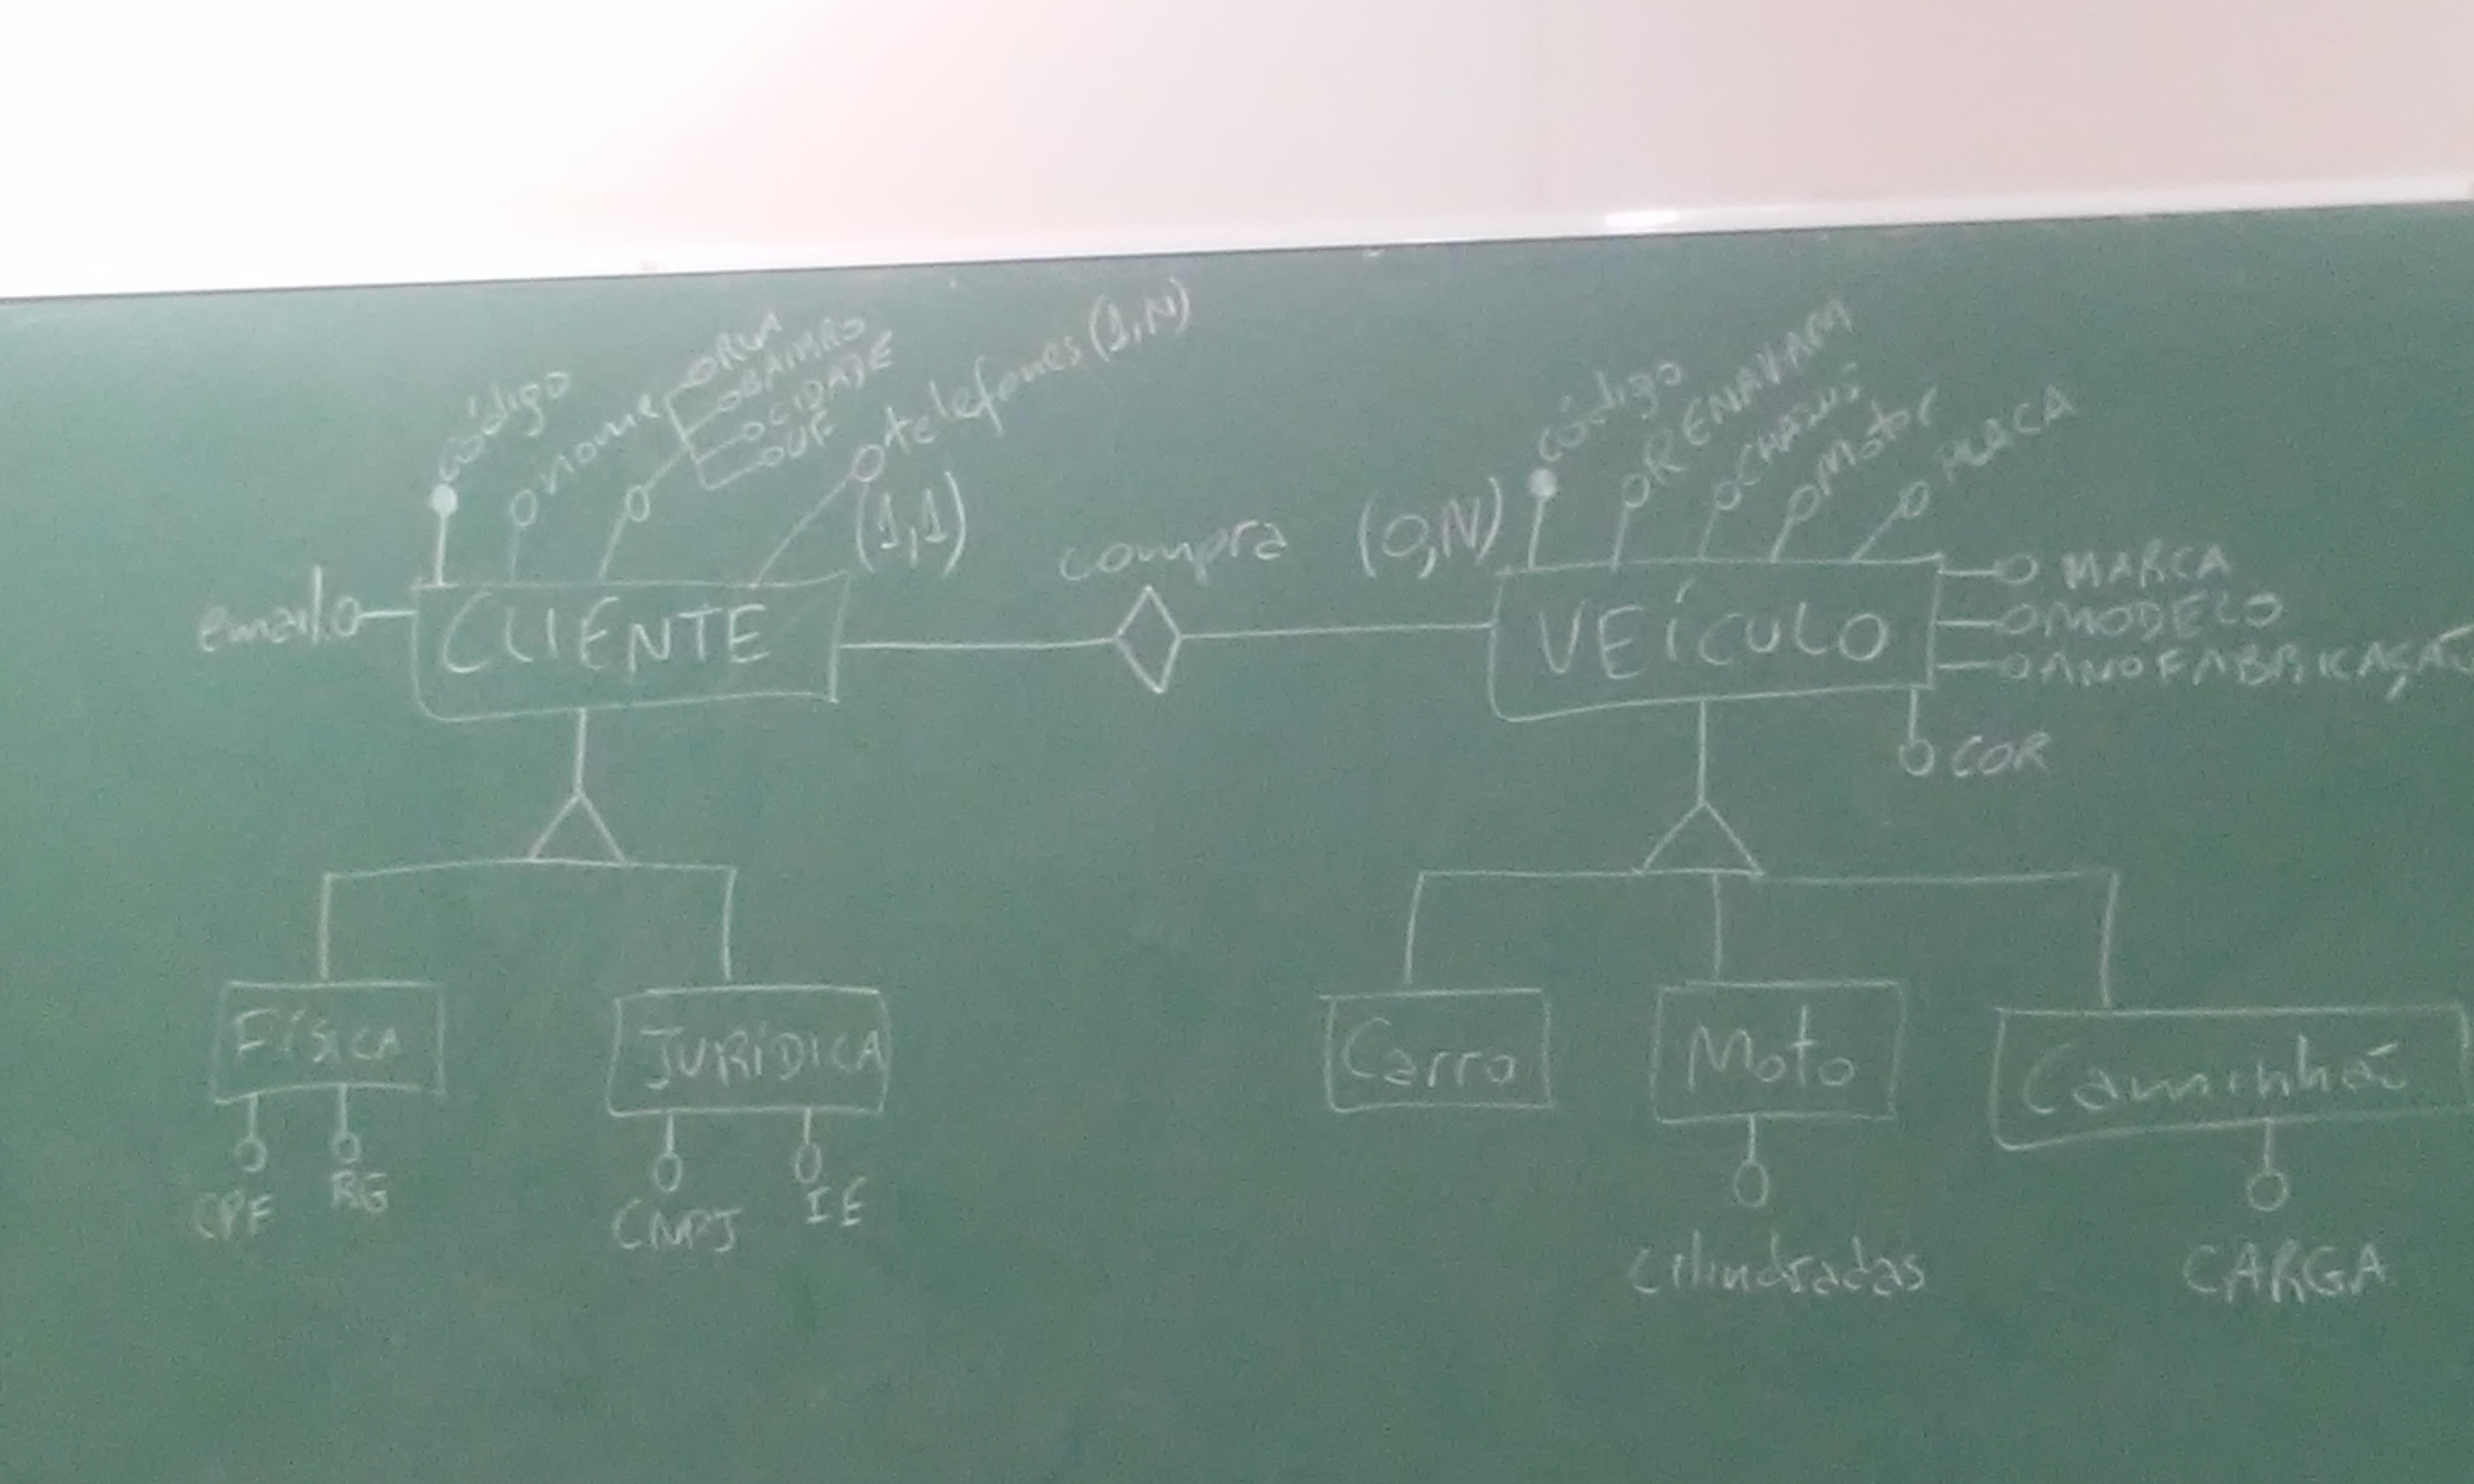 código
nome
RUA
BAIRRO
CIDADE
UF
telefones (1,N)
email
CLIENTE
(1,1)
compra
(0,N)
código
RENAVAM
CHASSIS
Motor
PLACA
VEÍCULO
MARCA
MODELO
ANOFABRICAÇÃO
COR
FÍSICA
CPF
RG
JURÍDICA
CNPJ
IE
Carro
Moto
cilindradas
Caminhão
CARGA